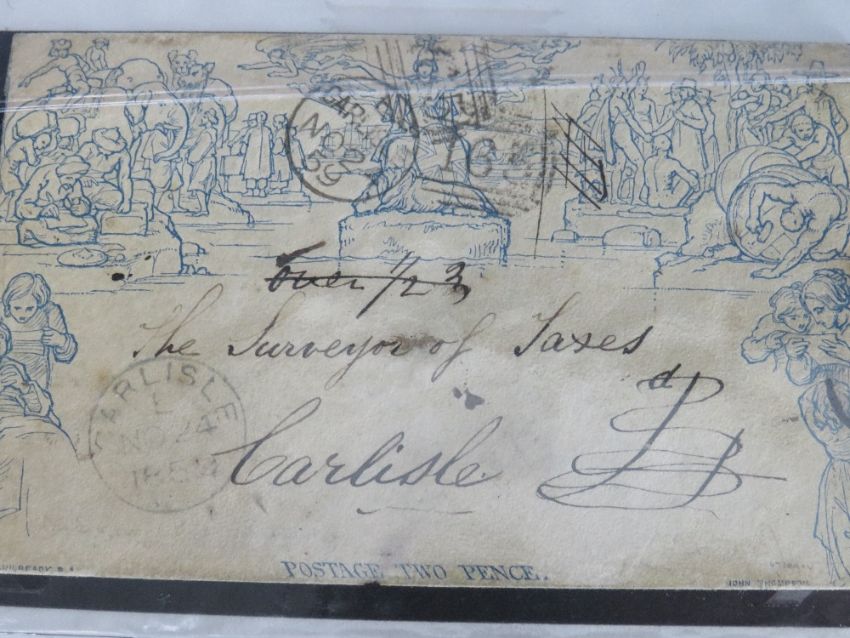 NO 2
59
165
over 1/2 3
The Surveyor of Taxes
CARLISLE
NO 24
1859
Carlisle
POSTAGE TWO PENCE.
JOHN THOMPSON